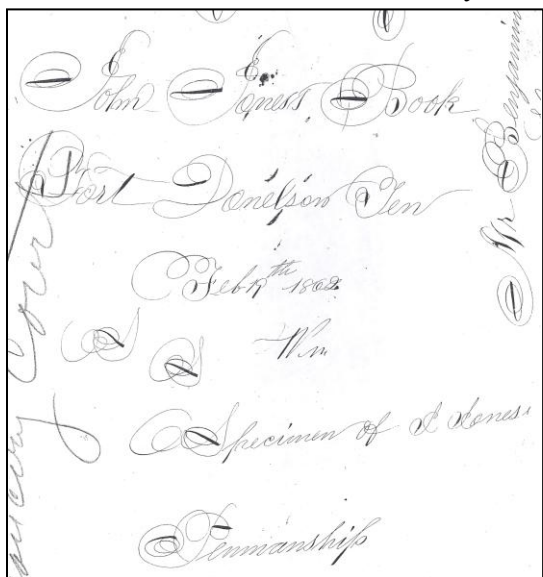 John Joness Book
Fort Donelson Ten
Feb th 1862
Wm
Specimen of J Jones
Penmanship
Mr Benjamin
Cover